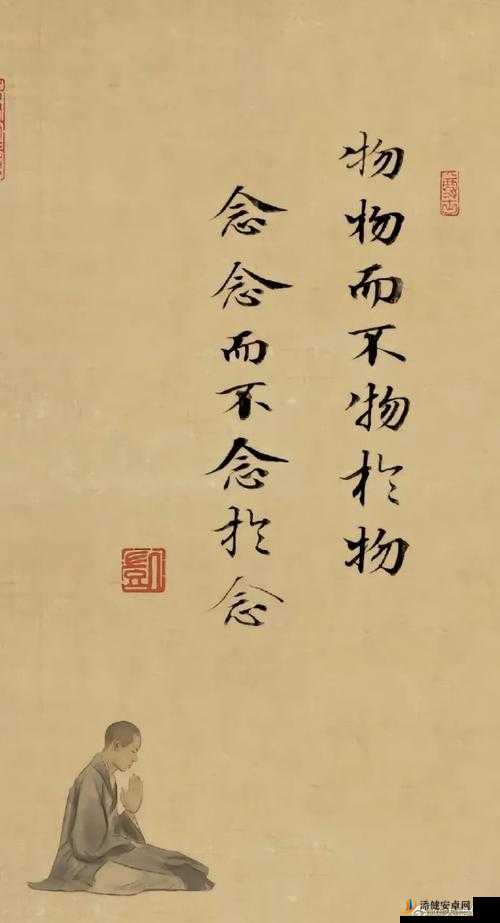 物物而不物於物
念念而不念於念
浩健安卓网